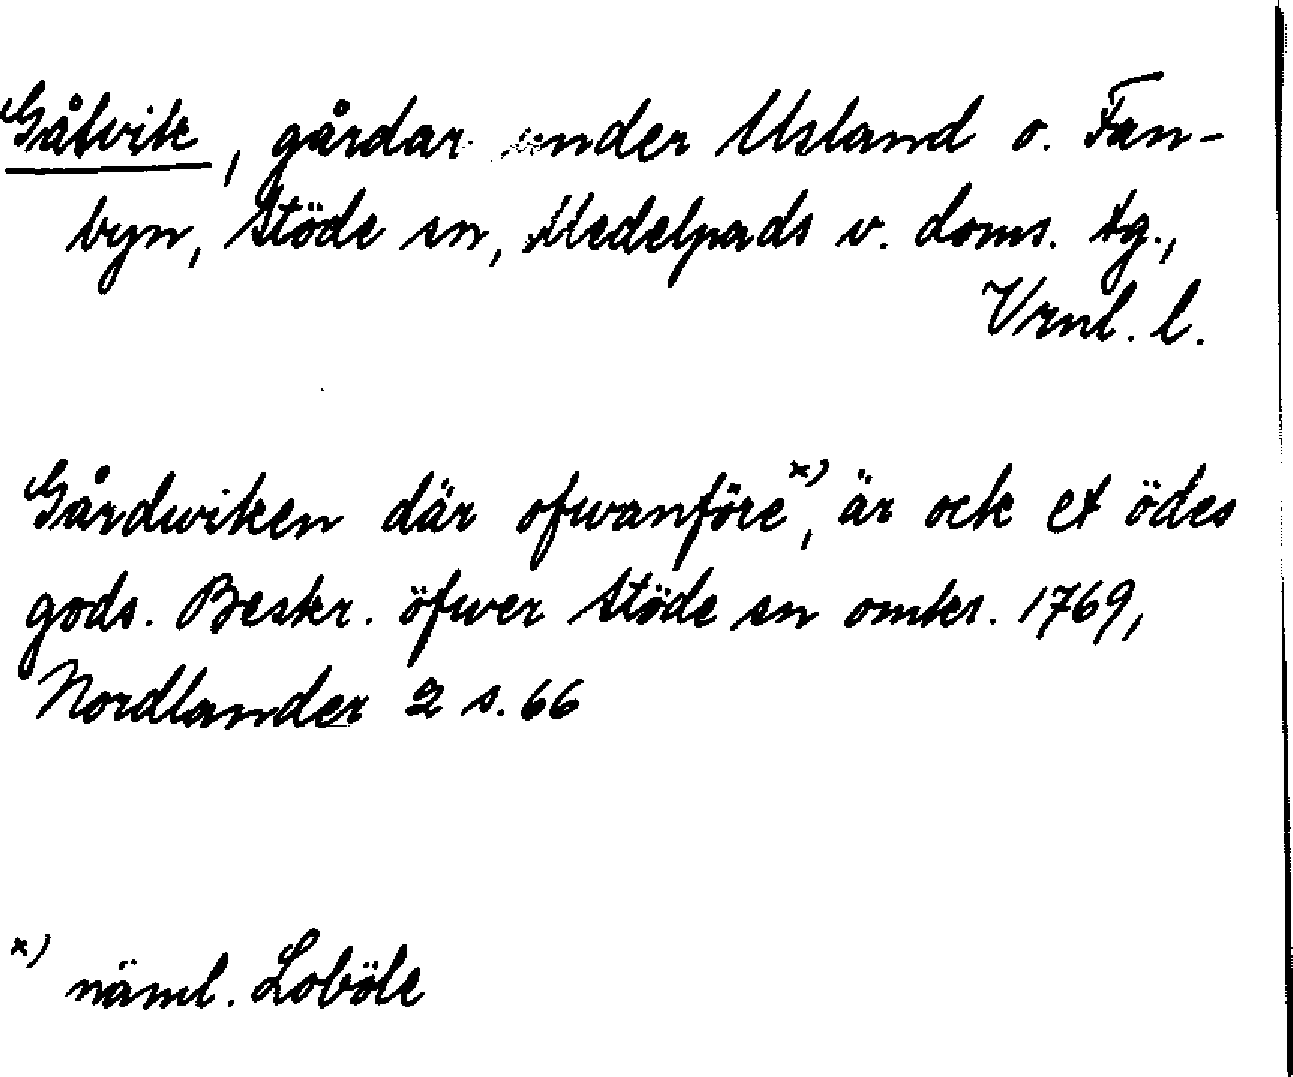 Gålvik, gårdar under Usland o. Fan-
byn, Stöde sn, Medelpads v. doms. tg.,
Vrnl. l.
Gårdwiken där ofwanföre x), är ock et ödes
gods. Beskr. öfwer Stöde sn omkr. 1769,
Nordlander 2 s. 66
x) näml. Loböle